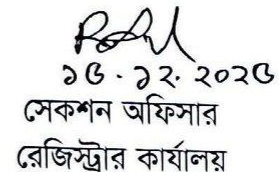 ১৫.১২.২০২৫
সেকশন অফিসার
রেজিস্ট্রার কার্যালয়